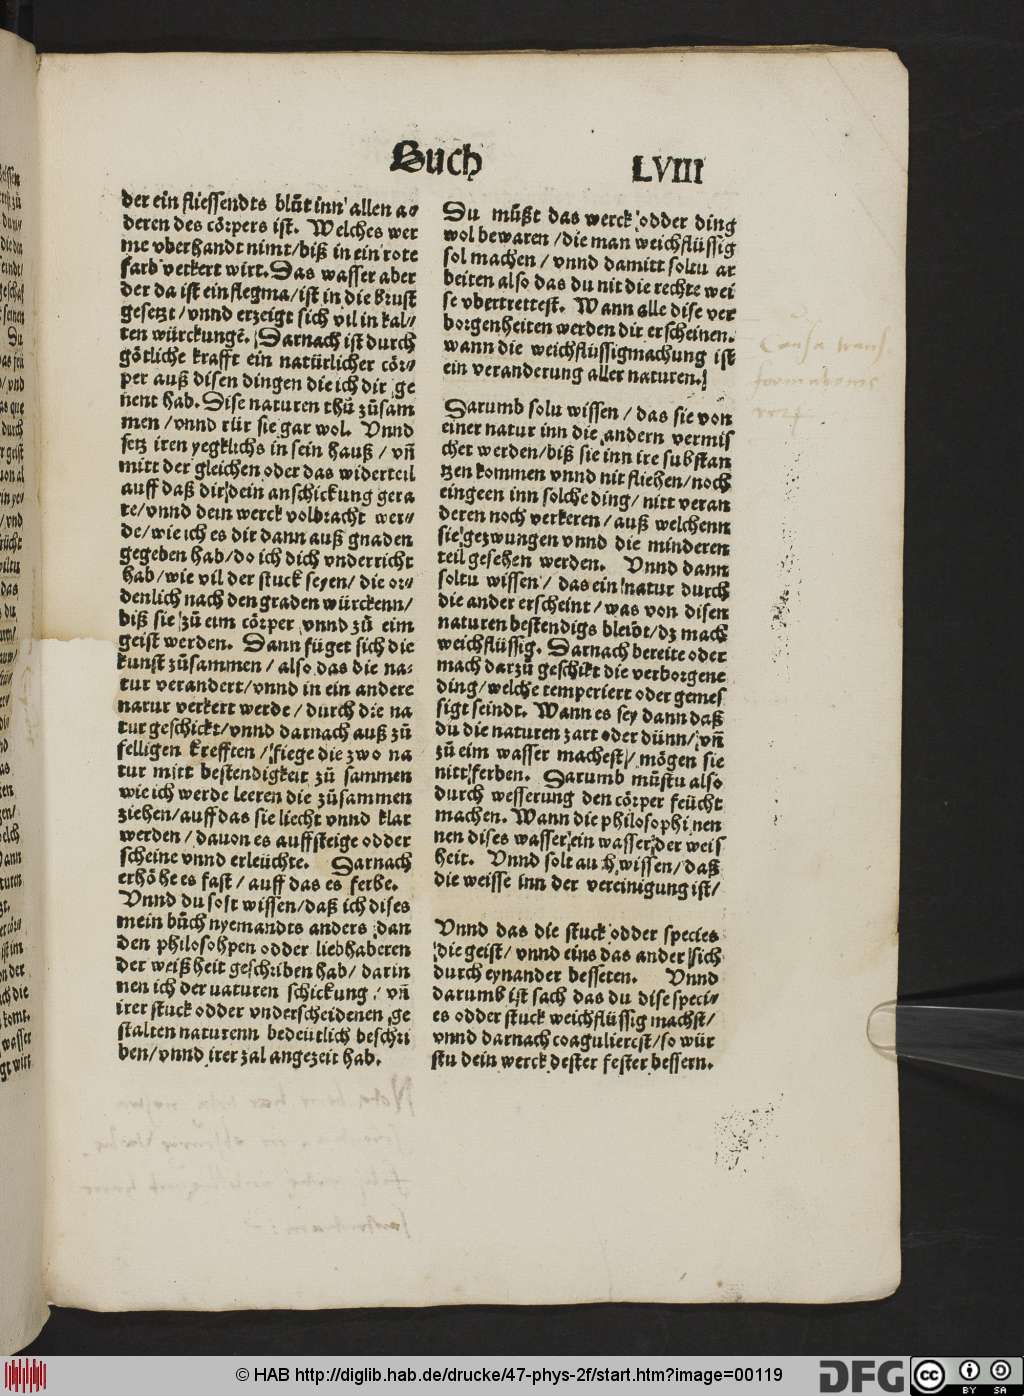 Buch
LVIII
der ein fliessendts blůt inn allen a⸗
deren des cörpers ist. Welches wer
me vberhandt nimt/biß in ein rote
farb verkert wirt. Das wasser aber
der da ist ein flegma/ist in die brust
gesetzt/vnnd erzeigt sich vil in kal⸗
ten würckungē. Darnach ist durch
götliche krafft ein natürlicher cör⸗
per auß disen dingen die ich dir ge
nent hab. Dise naturen thů zůsam
men/vnnd rür sie gar wol. Vnnd
setz iren yegklichs in sein hauß/vñ
mitt der gleichen oder das widerteil
auff daß dir dein anschickung gera
te/vnnd dein werck volbracht wer⸗
de/wie ich es dir dann auß gnaden
gegeben hab/do ich dich vnderricht
hab/wie vil der stuck seyen/die or⸗
denlich nach den graden würckenn/
biß sie zů eim cörper vnnd zů eim
geist werden. Dann füget sich die
kunst zůsammen/also das die na⸗
tur verandert/vnnd in ein andere
natur verkert werde/durch die na
tur geschickt/vnnd darnach auß zů
felligen krefften/fiege die zwo na
tur mitt bestendigkeit zů sammen
wie ich werde leeren die zůsammen
ziehen/auff das sie liecht vnnd klar
werden/dauon es auffsteige odder
scheine vnnd erleüchte. Darnach
erhöhe es fast/auff das es ferbe.
Vnnd du solt wissen/daß ich dises
mein bůch nyemandts anders dan
den philosohpen odder liebhaberen
der weißheit geschriben hab/darin
nen ich der uaturen schickung/vñ
irer stuck odder vnderscheidenen ge
stalten naturenn bedeütlich beschri
ben/vnnd irer zal angezeit hab.
Du můßt das werck odder ding
wol bewaren/die man weichflüssig
sol machen/vnnd damitt soltu ar
beiten also das du nit die rechte wei
se vbertrettest. Wann alle dise ver
borgenheiten werden dir erscheinen.
wann die weichflüssigmachung ist
ein veranderung aller naturen.
Darumb solu wissen/das sie von
einer natur inn die andern vermis
chet werden/biß sie inn ire substan
tzen kommen vnnd nit fliehen/noch
eingeen inn solche ding/nitt veran
deren noch verkeren/auß welchenn
sie gezwungen vnnd die minderen
teil gesehen werden. Vnnd dann
soltu wissen/das ein natur durch
die ander erscheint/was von disen
naturen bestendigs bleibt/dz mach
weichflüssig. Darnach bereite oder
mach darzů geschikt die verborgene
ding/welche temperiert oder gemes
sigt seindt. Wann es sey dann daß
du die naturen zart oder dünn/vñ
zů eim wasser machest/mögen sie
nitt ferben. Darumb můstu also
durch wesserung den cörper feücht
machen. Wann die philosophi nen
nen dises wasser ein wasser der weis
heit. Vnnd solt auch wissen/daß
die weisse inn der vereinigung ist/
Vnnd das die stuck odder species
die geist/vnnd eins das ander sich
durch eynander besseten. Vnnd
darumb ist sach das du dise speci⸗
es odder stuck weichflüssig machst/
vnnd darnach coaguliercst/so wür
stu dein werck dester fester bessern.
Causa trans
formationis
© HAB http://diglib.hab.de/drucke/47-phys-2f/start.htm?image=00119
DFG
cc
BY SA